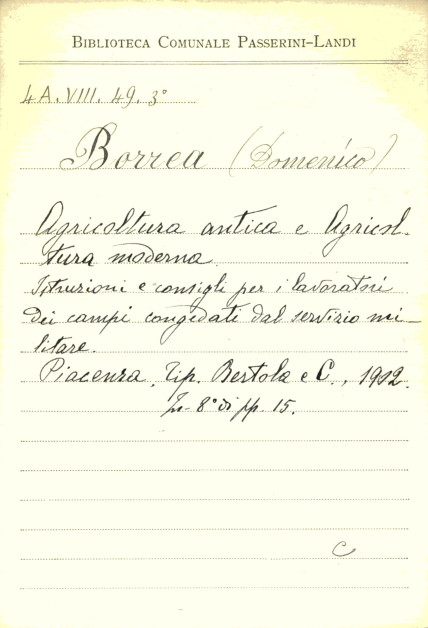 BIBLIOTECA COMUNALE PASSERINI-LANDI
4A. VIII. 49. 3°
Borrea (Domenico)
Agricoltura antica e Agricol-
tura moderna.
Istruzioni e consigli per i lavoratori
dei campi congedati dal servizio mi-
litare.
Piacenza, Tip. Bertola e C., 1912.
In-8° di pp. 15.
C